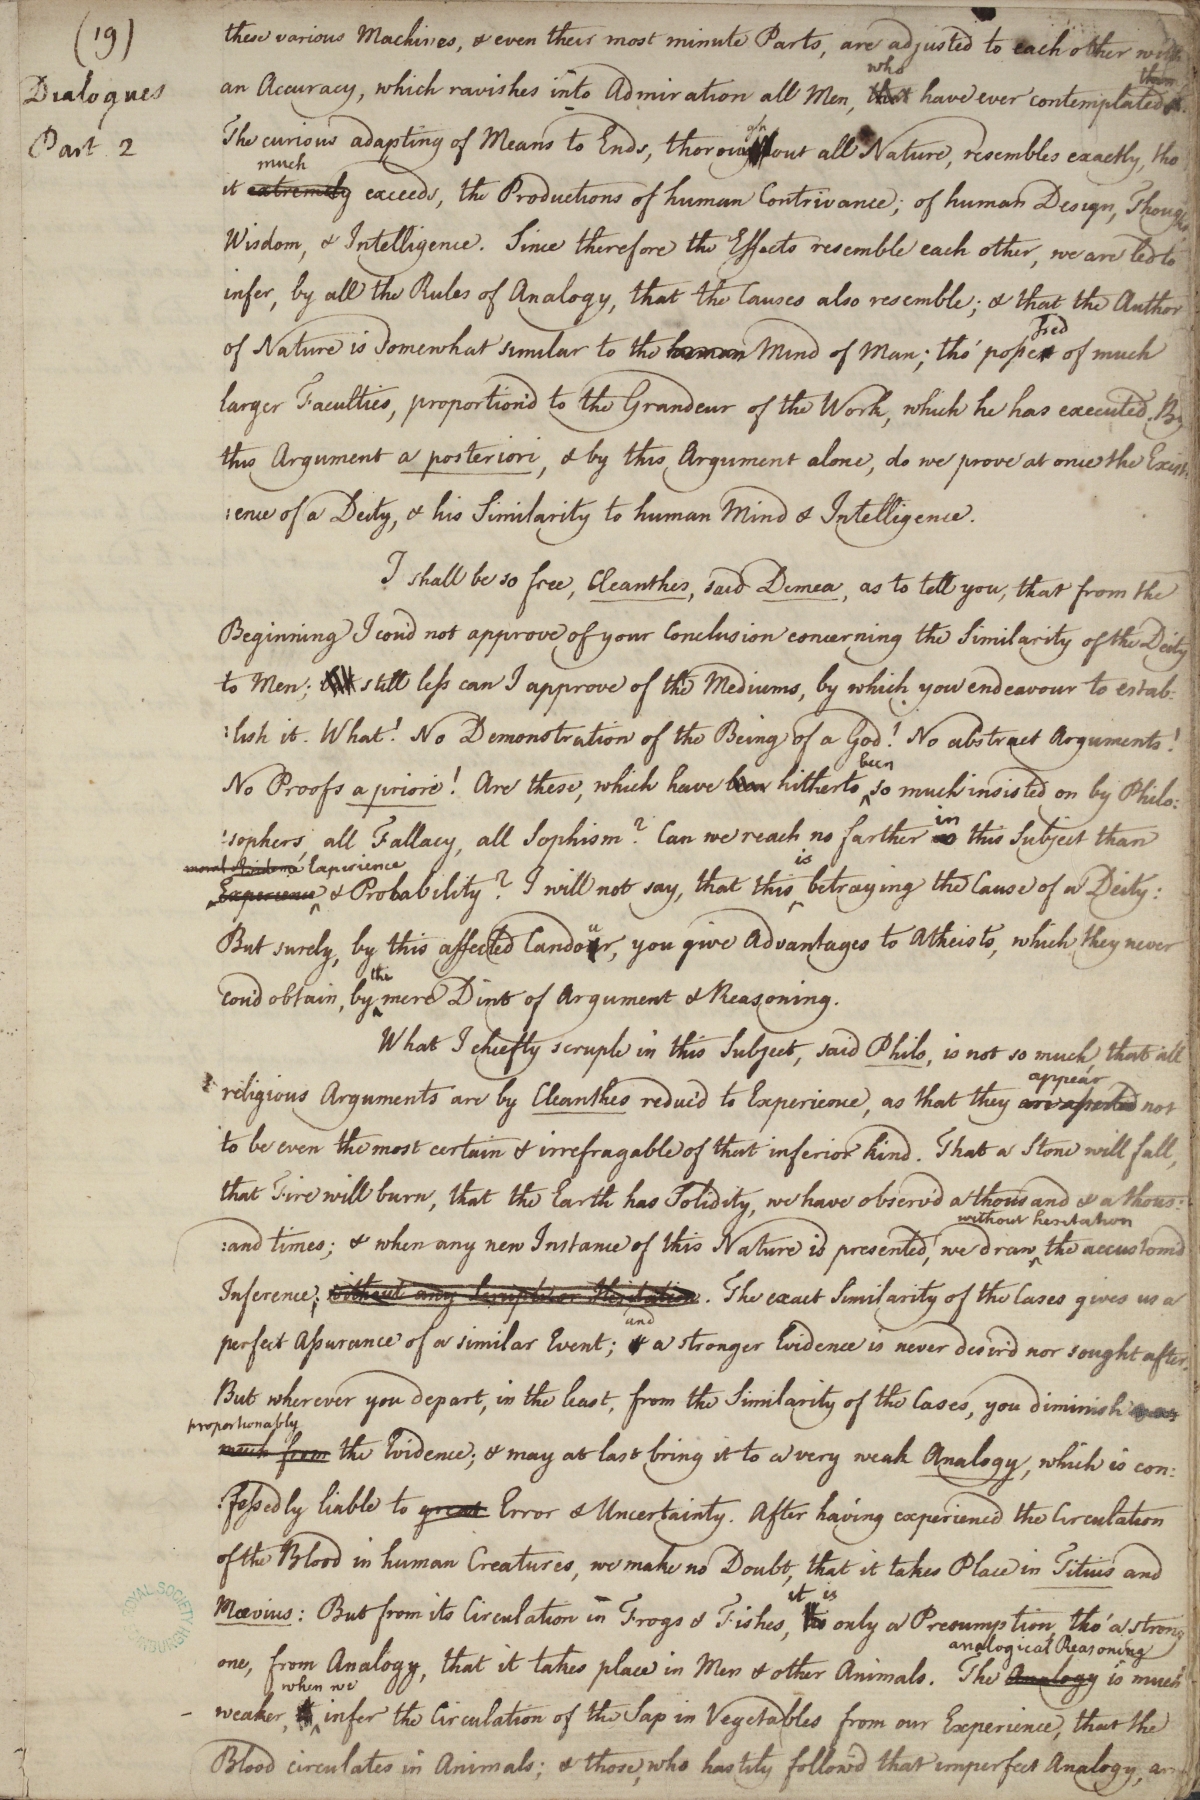 (19)
Dialogues
Part 2
these various Machines, & even their most minute Parts, are adjusted to each other with
who them
an Accuracy, which ravishes into Admiration all Men, that have ever contemplated
gh
The curious adapting of Means to Ends, thorough out all Nature, resembles exactly, tho
much
it extremely exceeds, the Productions of human Contrivance; of human Design, Thought
Wisdom, & Intelligence. Since therefore the Effects resemble each other, we are led to
infer, by all the Rules of Analogy, that the Causes also resemble; & that the Author
ssed
of Nature is somewhat similar to the human Mind of Man; tho' possest of much
larger Faculties, proportion'd to the Grandeur of the Work, which he has executed. By
this Argument a posteriori, & by this Argument alone, do we prove at once the Exist:
:ence of a Deity, & his Similarity to human Mind & Intelligence.
I shall be so free, Cleanthes, said Demea, as to tell you, that from the
Beginning I coud not approve of your Conclusion concerning the Similarity of the Deity
to Men; still less can I approve of the Mediums, by which you endeavour to estab:
:lish it. What! No Demonstration of the Being of a God! No abstract Arguments!
been
No Proofs a priori! Are these, which have been hitherto so much insisted on by Philo:
in
:sophers, all Fallacy, all Sophism? Can we reach no farther in this Subject than
moral Evidence Experience is
Experience & Probability? I will not say, that this betraying the Cause of a Deity:
u
But surely, by this affected Candour, you give Advantages to Atheists, which they never
the
coud obtain, by mere Dint of Argument & Reasoning.
What I chiefly scruple in this Subject, said Philo, is not so much, that all
appear
religious Arguments are by Cleanthes reduc'd to Experience, as that they are asserted not
to be even the most certain & irrefragable of that inferior kind. That a Stone will fall,
that Fire will burn, that the Earth has Solidity, we have observ'd a thousand & a thous:
without hesitation
:and times; & when any new Instance of this Nature is presented, we draw the accustom'd
Inference; without any Scruple or Hesitation. The exact Similarity of the Cases gives us a
and
perfect Assurance of a similar Event; & a stronger Evidence is never desir'd nor sought after.
But wherever you depart, in the least, from the Similarity of the Cases, you diminish
proportionably
much from the Evidence; & may at last bring it to a very weak Analogy, which is con:
:fessedly liable to great Error & Uncertainty. After having experienc'd the Circulation
of the Blood in human Creatures, we make no Doubt, that it takes Place in Titius and
it is
Mævius: But from its Circulation in Frogs & Fishes, only a Presumption, tho' a strong
analogical Reasoning
one, from Analogy, that it takes place in Men & other Animals. The Analogy is much
when we
weaker, infer the Circulation of the Sap in Vegetables from our Experience, that the
Blood circulates in Animals; & those, who hastily follow'd that imperfect Analogy, are
ROYAL SOCIETY
EDINBURGH